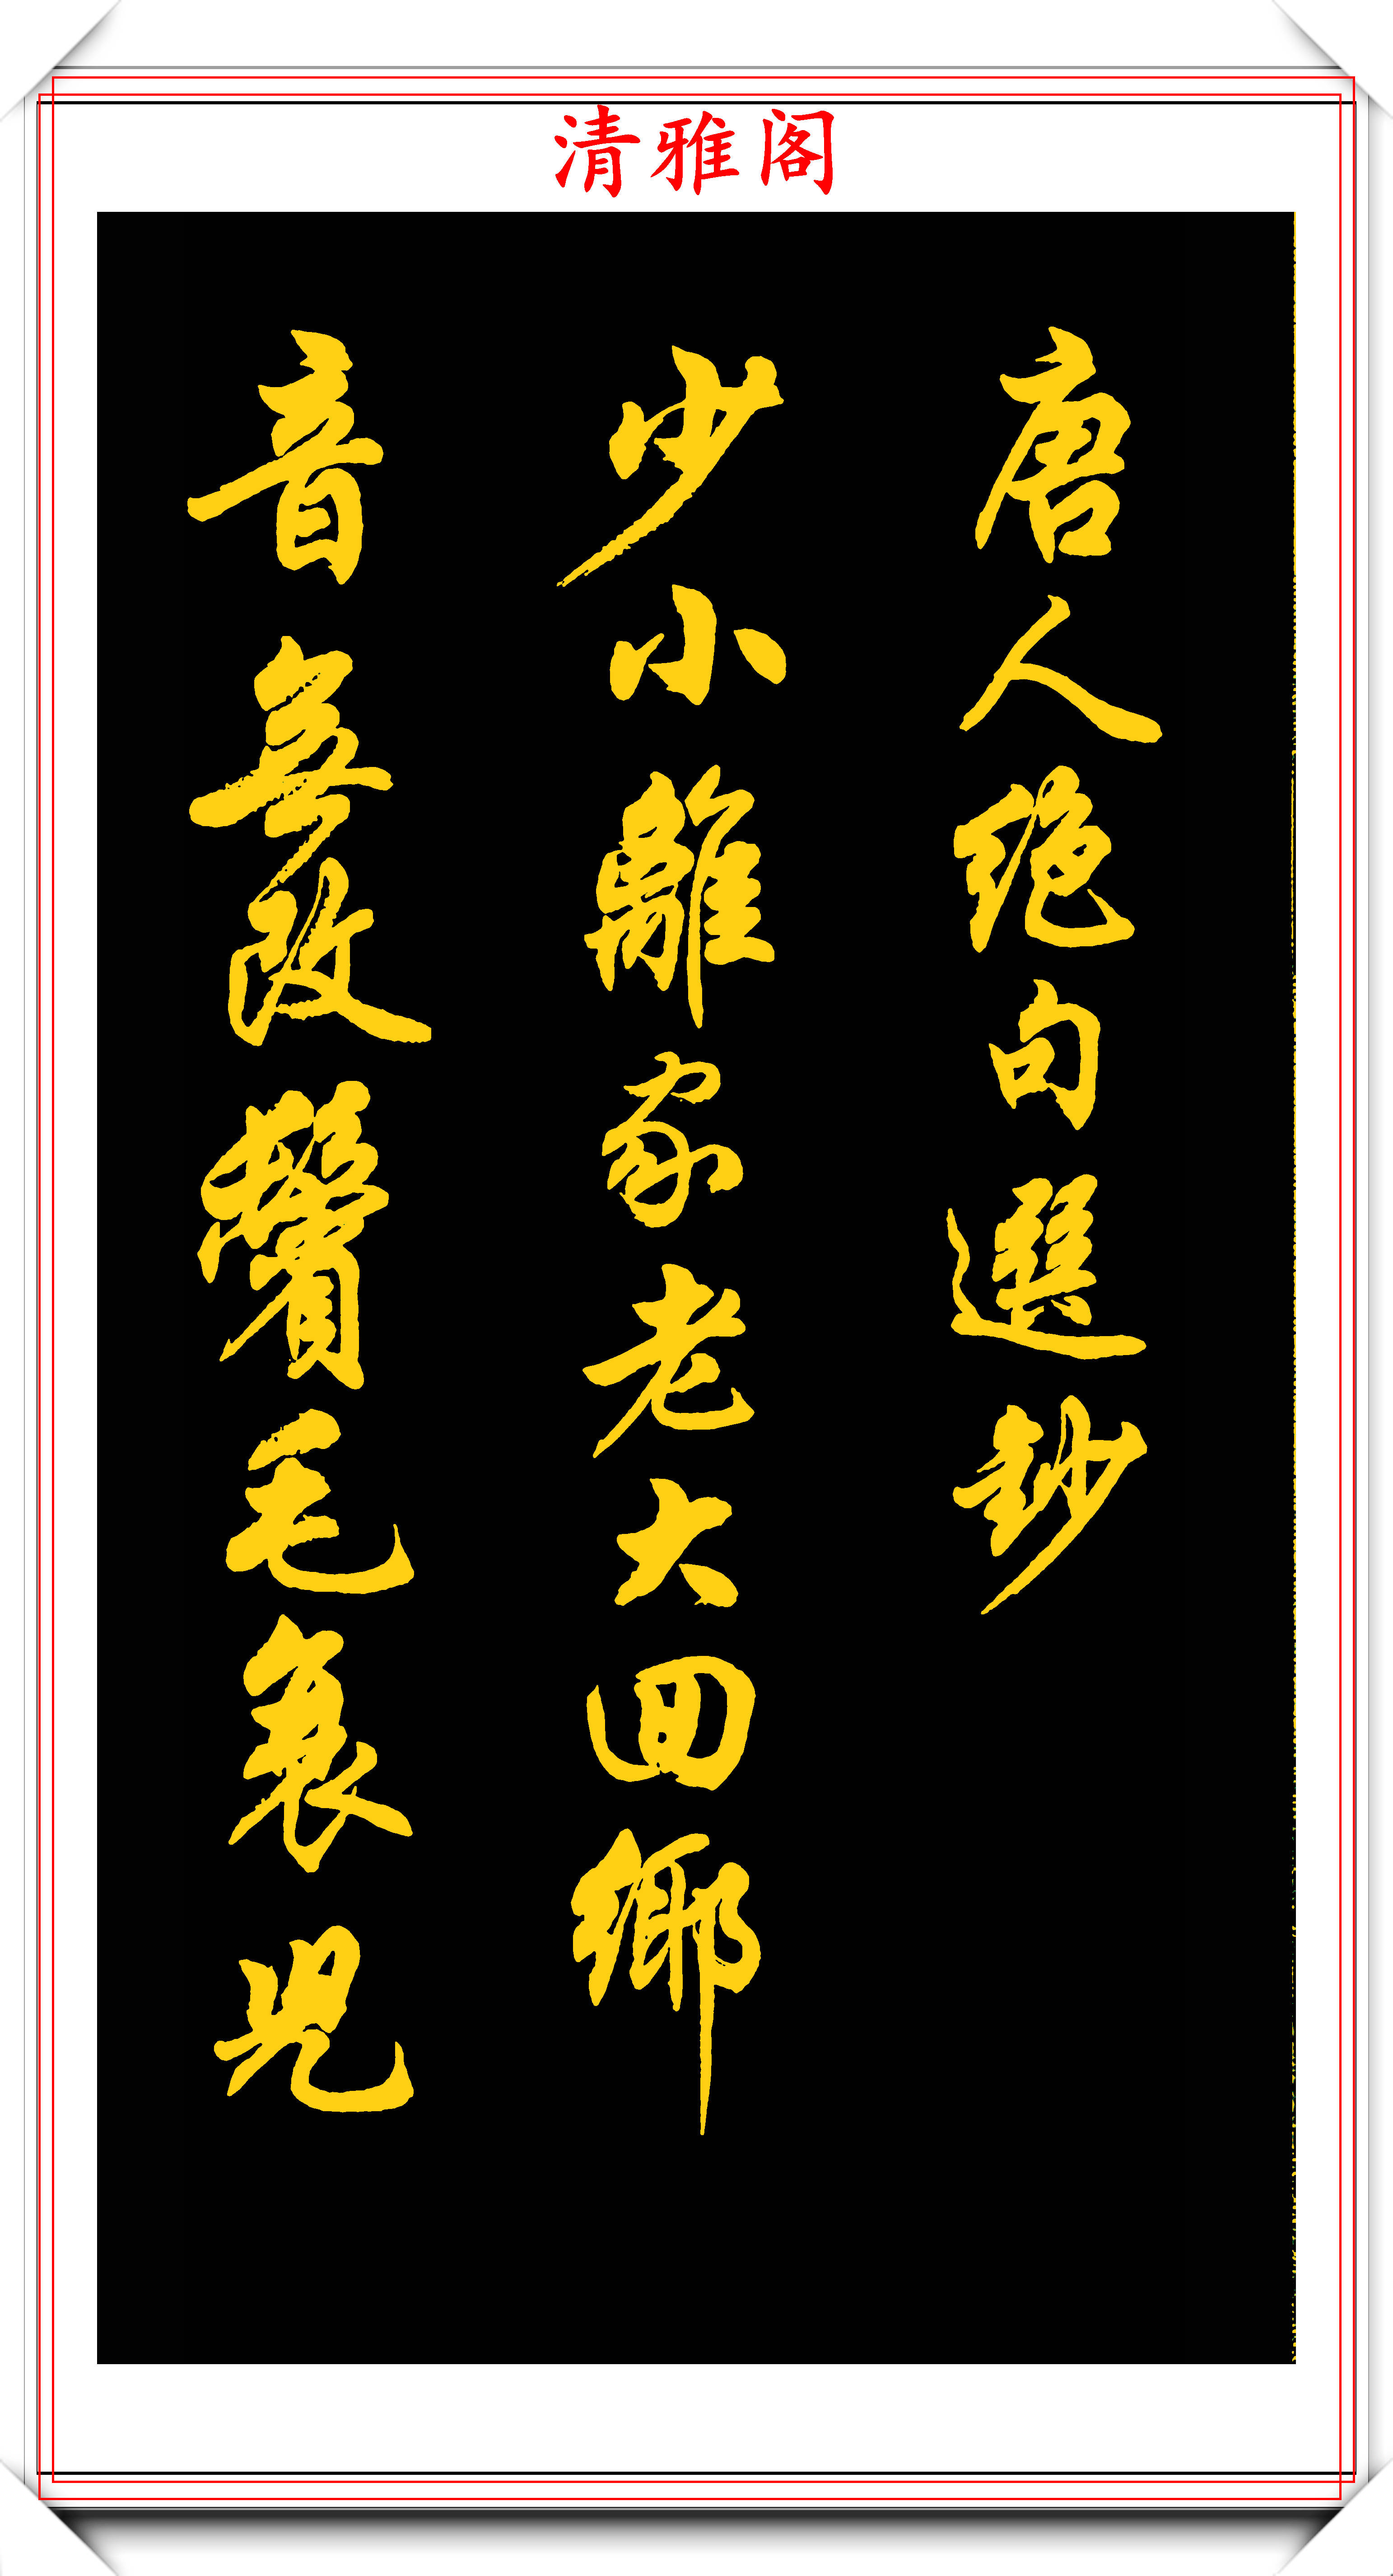 清雅阁
唐人绝句選鈔
少小離家老大回鄉
音無改鬢毛衰兒